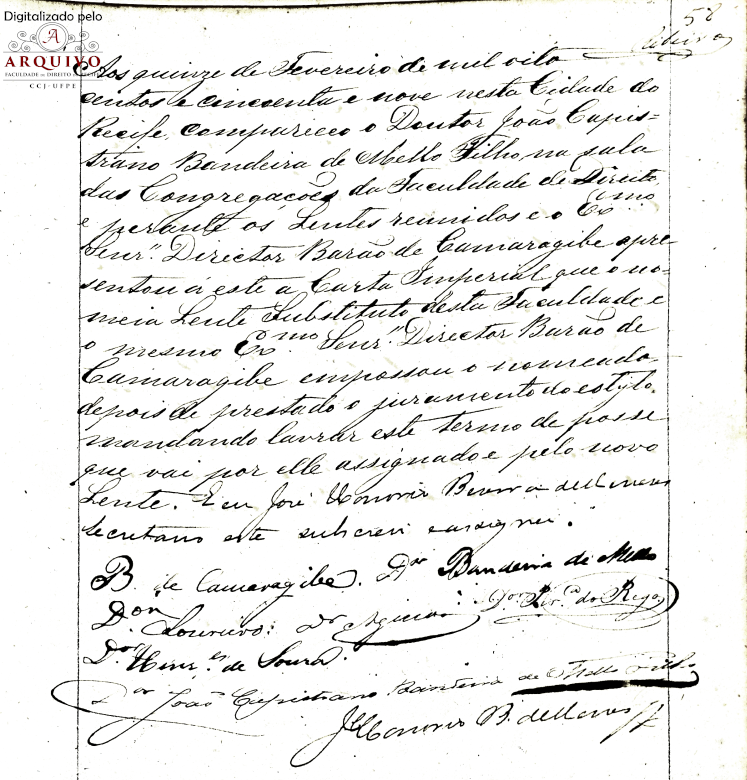 Digitalizado pelo
ARQUIVO
FACULDADE DE DIREITO DO RECIFE
CCJ-UFPE
58
Aos quinze de Fevereiro de mil oito
centos e cincoenta e nove nesta Cidade do
Recife, compareceo o Doutor João Capis-
trano Bandeira de Mello Filho, na sala
das Congregações da Faculdade de Direito,
e perante os Lentes reunidos e o Ex.mo
Senr. Director Barão de Camaragibe apre-
sentou á este a Carta Imperial que o no-
meia Lente Substituto desta Faculdade e
o mesmo Ex.mo Senr. Director Barão de
Camaragibe empossou o nomeado
depois de prestado o juramento do estylo,
mandando lavrar este termo de posse
que vai por elle assignado e pelo novo
Lente. E eu José Honorio Bezerra de Menezes
secretario este subscrevi e assignei.
B. de Camaragibe. Dor Bandeira de Mello
Dor Loureiro. Dr Aguiar Dor do Rego
Dor de Souza.
Dor João Capistrano Bandeira de Mello Filho
J. Honorio B. de Menezes